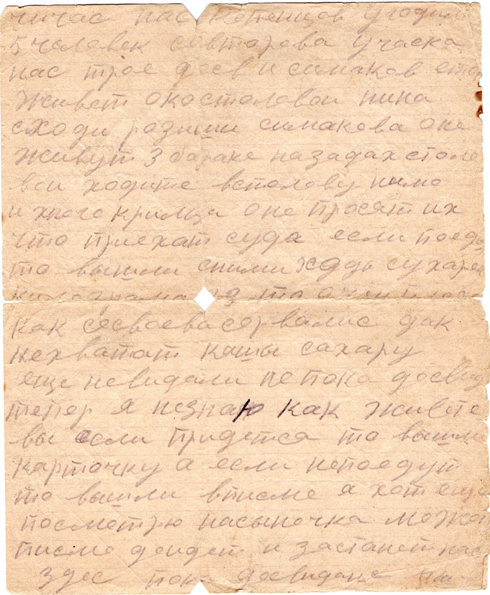 час нас котенцов угодил
5 человек совторова участка
нас трое доев и симаков ето
живет окостоловои нина
сходи розыши симакова оне
живут 3 бараке назадах столо
вои ходите встолову мимо
ихнего крилца оне просят их
что приехат суда если поеду
то вышли сними жддь сухарей
килограма
как своеваи сорвалис дак
нехватат кашы сахару
еще невидали не
тепер я незнаю как живете
вы если придетса то вышли
карточку а если непоедут
то вышли вписме я хот еще
посмотрю насыночка може
писмо дойдет и застанет нас
здес пока досвидане